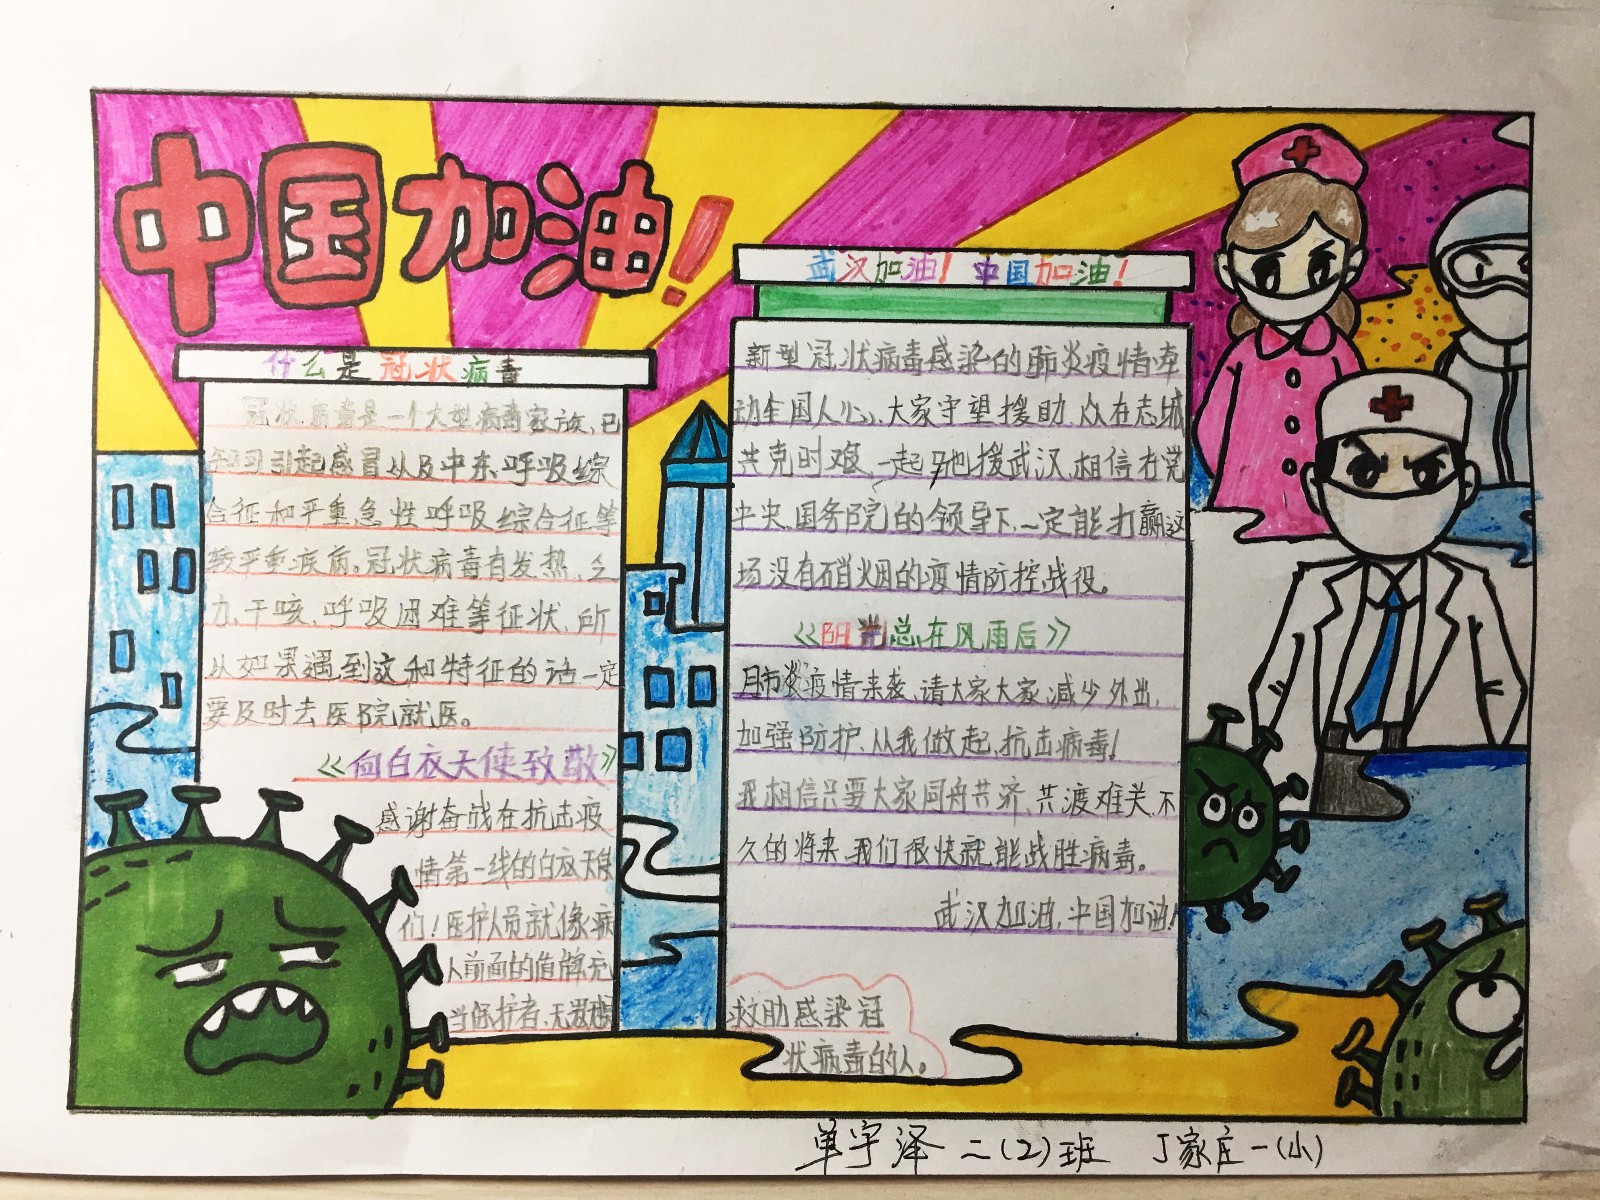 中国加油!
什么是冠状病毒
冠状病毒是一个大型病毒家族,已
知可引起感冒以及中东呼吸综
合征和严重急性呼吸综合征等
较严重疾病。冠状病毒有发热、乏
力、干咳、呼吸困难等征状、所
以如果遇到这和特征的话一定
要及时去医院就医。
《向白衣天使致敬》
感谢奋战在抗击疫
情第一线的白衣天使
们!医护人员就像病
人前面的值牌充
当保护者、无
武汉加油!中国加油!
新型冠状病毒感染的肺炎疫情牵
动全国人心、大家守望援助、众在志城
共克时难,一起驰援武汉,相信在党
中央、国务院的领导下、一定能打赢这
场没有硝烟的疫情防控战役。
《阳光总在风雨后》
肺炎疫情来袭、请大家大家减少外出,
加强防护、从我做起、抗击病毒!
我相信只要大家同舟共济、共渡难关、不
久的将来我们很快就能战胜病毒。
武汉加油,中国加油!
救助感染冠
状病毒的人。
单宇泽 二(2)班 丁家庄一(小)